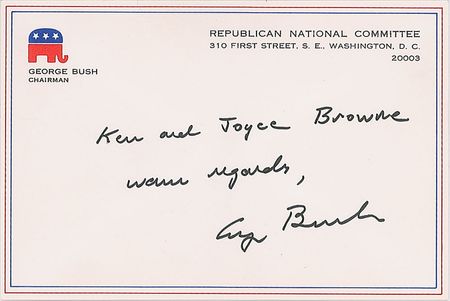 REPUBLICAN NATIONAL COMMITTEE
310 FIRST STREET, S. E., WASHINGTON, D. C.
20003
GEORGE BUSH
CHAIRMAN
Ken and Joyce Browne
warm regards,
Bush